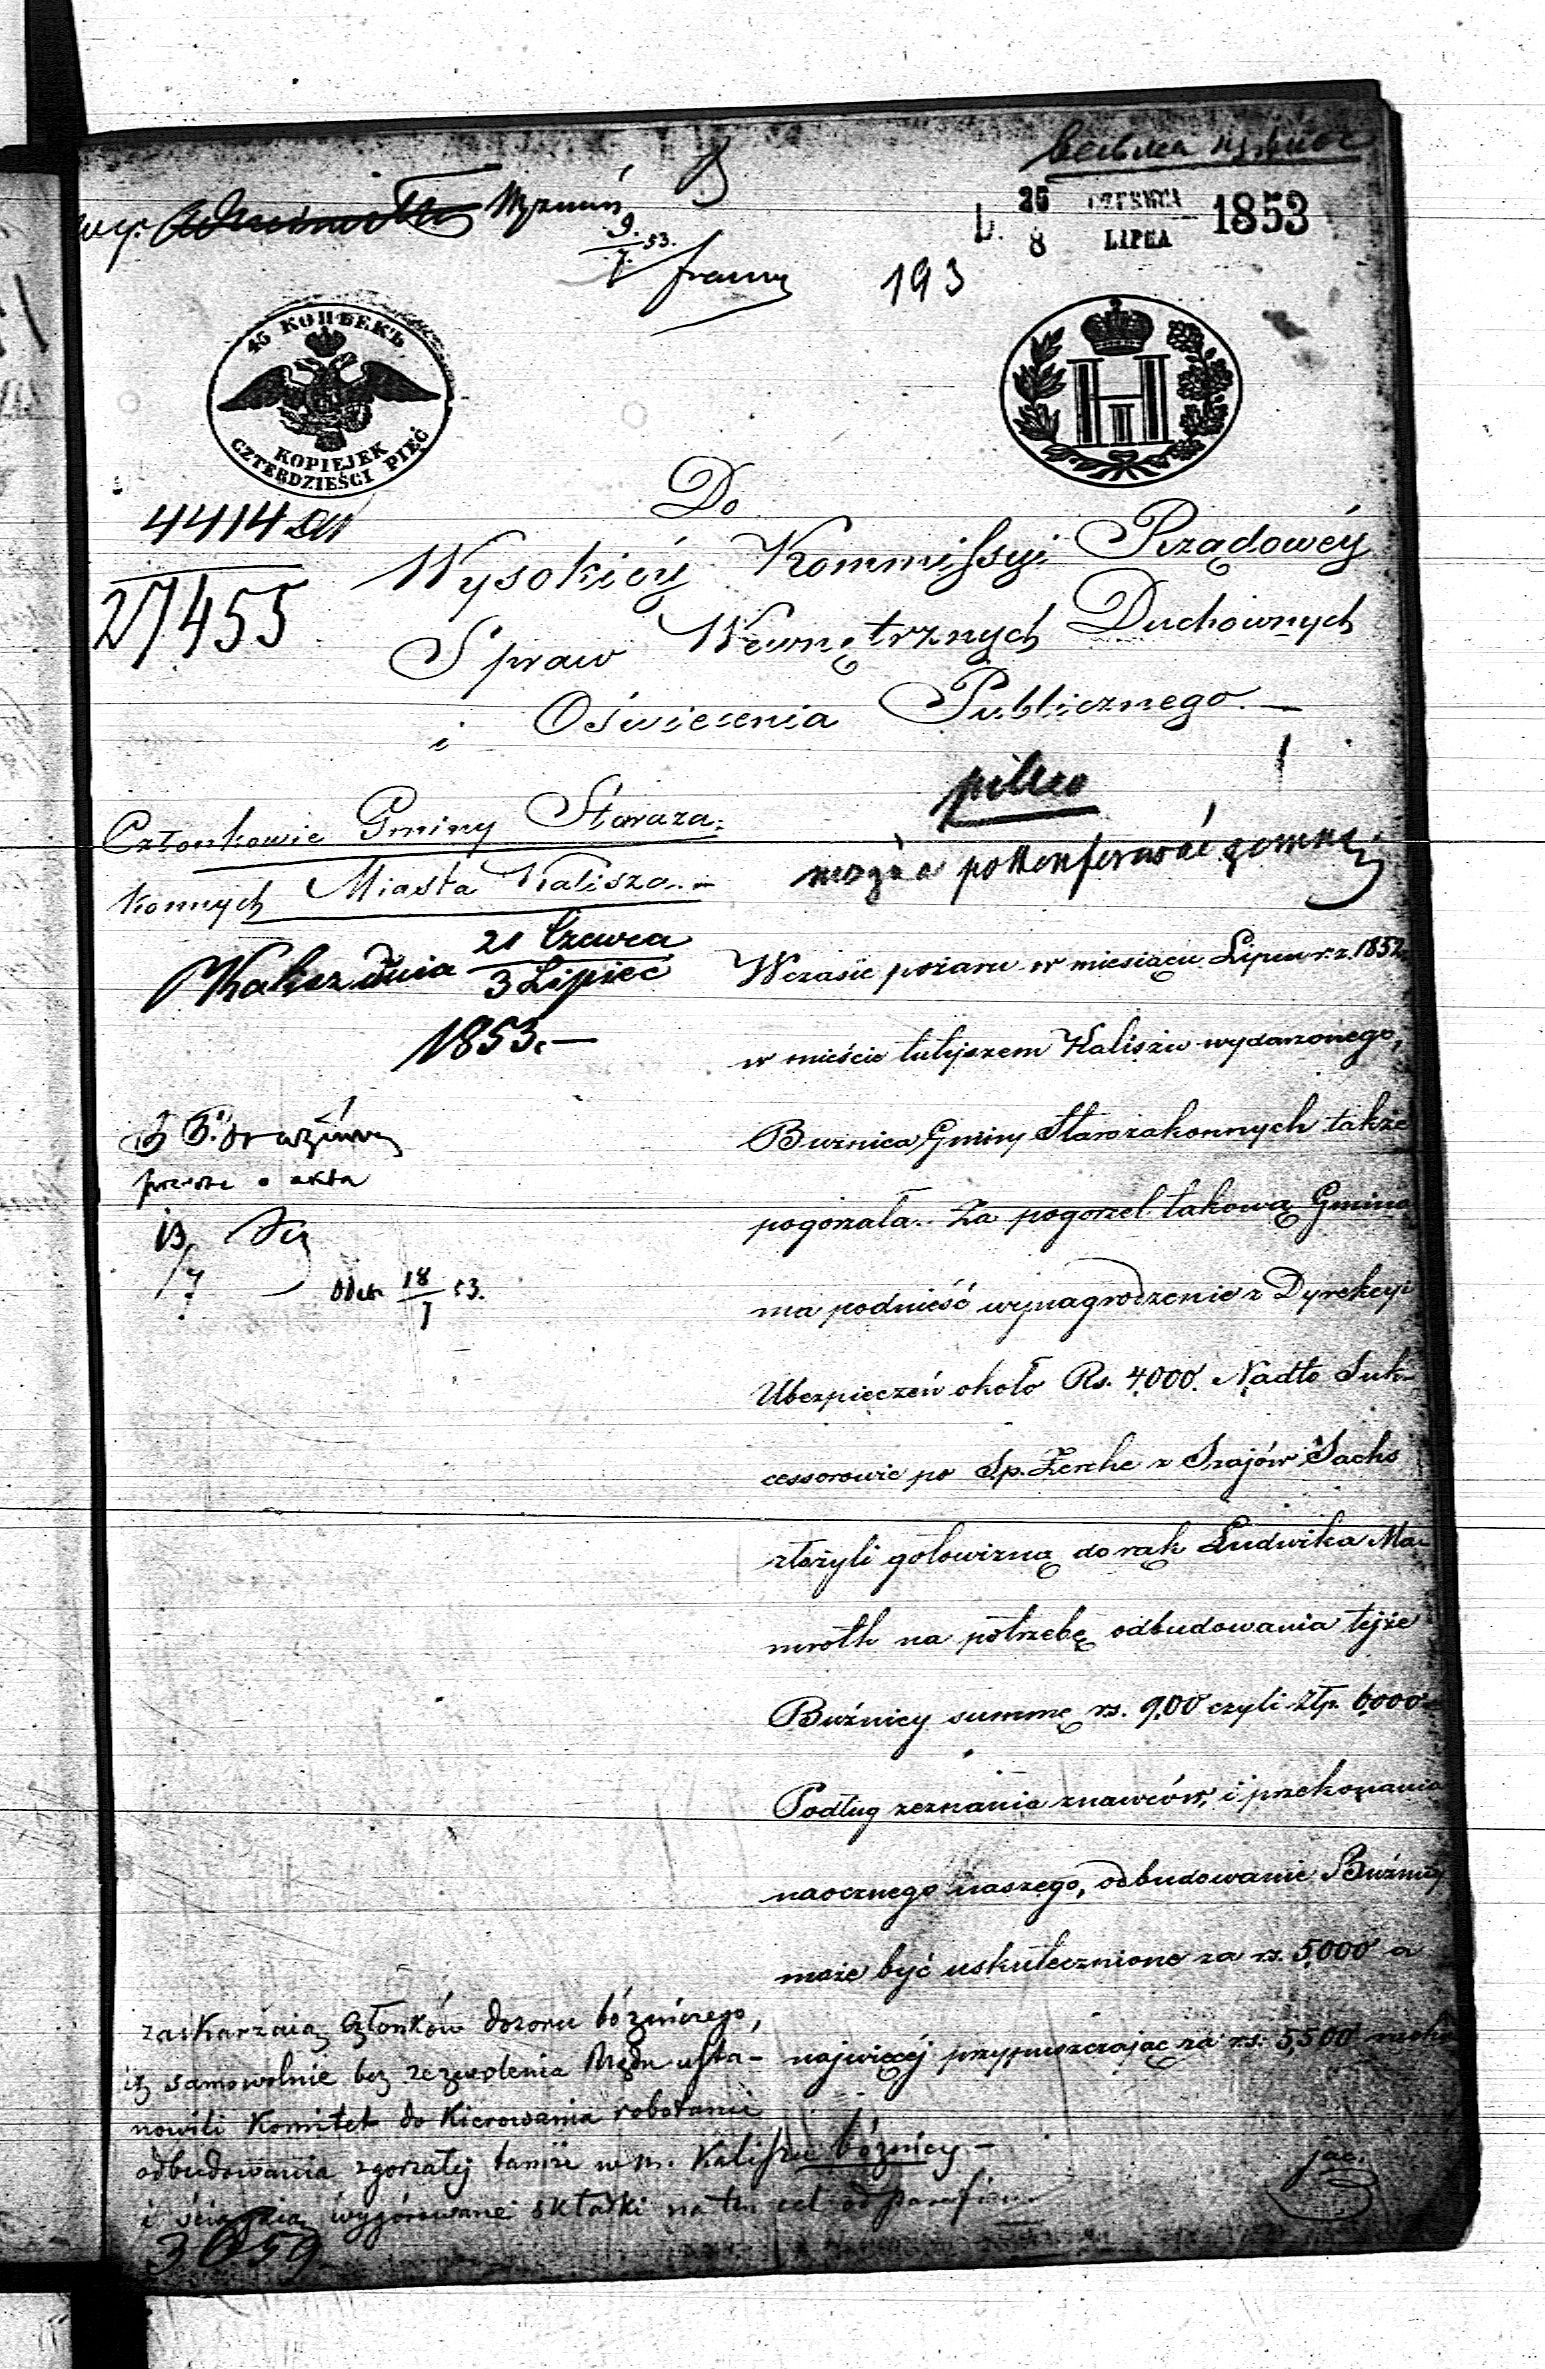 Wyznań
9/7 53.
D. 26 CZERWCA 1853
8 LIPCA
193
45 КОПѢЕКЪ
KOPIEJEK
CZTERDZIEŚCI PIĘĆ
4414
27455
Do
Wysokiéy Kommissyi Rządowéy
Spraw Wewnętrznych Duchownych
i Oświecenia Publicznego.—
pilno
Członkowie Gminy Staroza-
konnych Miasta Kalisza.—
Kalisz dnia 21 Czerwca
3 Lipiec
1853.—
Wczasie pożaru w miesiącu Lipcu r.z. 1852
w mieście tutejszem Kaliszu wydarzonego,
Buznica Gminy Starozakonnych także
pogorzała. Za pogorzel takową Gmina
ma podnieść wynagrodzenie z Dyrekcyi
Ubezpieczeń około Rs. 4,000. Nadto Suk-
cessorowie po Sp. Zerche z Szajów Sachs
złożyli gotowizną do rąk Ludwika Ma-
mroth na potrzebę odbudowania tejże
Buźnicy summę rs. 900 czyli Złp. 6000
Podług zeznania znawców, i przekonania
naocznego naszego, odbudowanie Buźnicy
może być uskutecznione za rs. 5,000 a
najwięcéj przypuszczając za rs. 5,500
akta
18/7 53.
zaskarżaią Członków dozoru bóźniczego,
iż samowolnie bez zezwolenia Rządu usta-
nowili Komitet do Kierowania robotami
odbudowania zgorzałéj tamże w m. Kaliszu bóźnicy —
i ściągaią wygórowane składki na ten cel od
3659